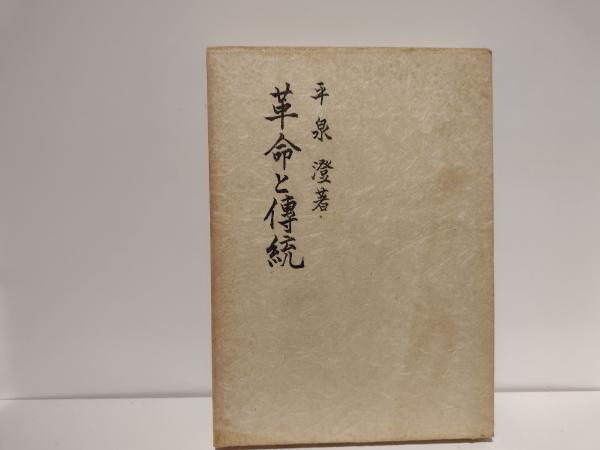 平泉澄著
革命と傳統